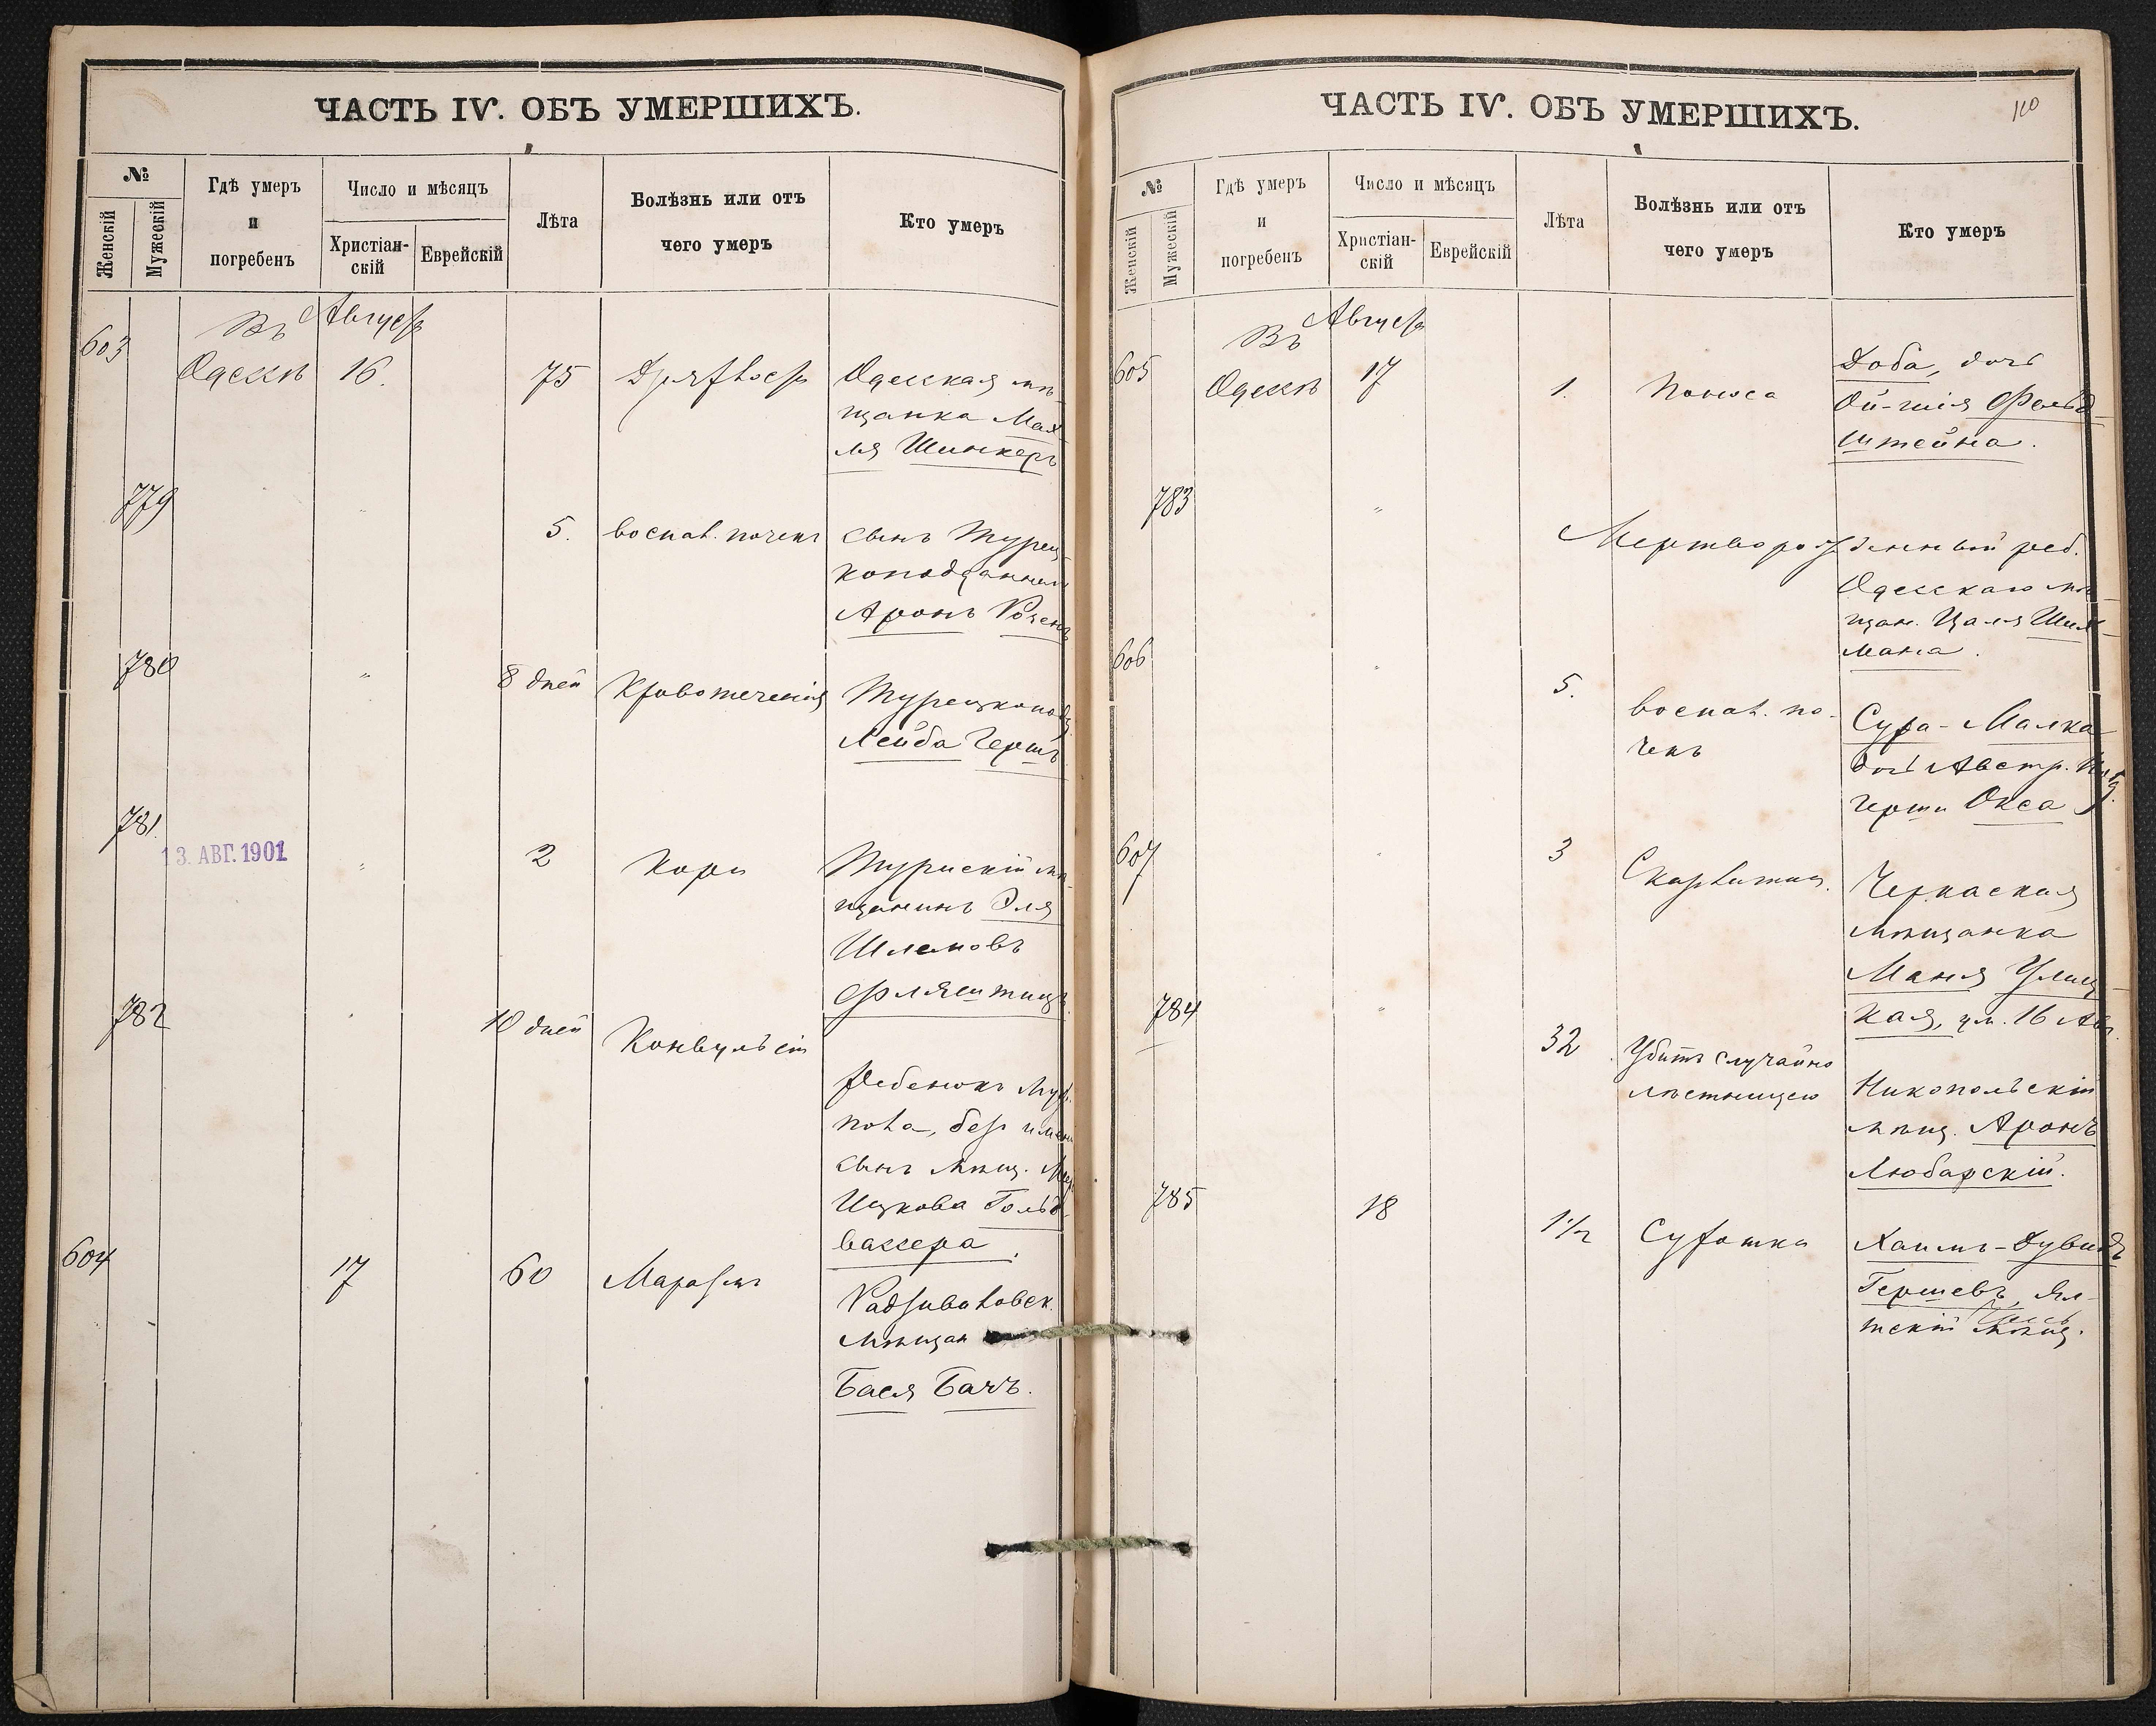 ЧАСТЬ IV. ОБЪ УМЕРШИХЪ.
№
Женскій
Мужескій
Гдѣ умеръ
и
погребенъ
Число и мѣсяцъ
Христіан-
скій
Еврейскій
Лѣта
Болѣзнь или отъ
чего умеръ
Кто умеръ
Въ Августѣ
603 Одессѣ 16. 75 Дряхлость Одесская мѣ-
щанка
ля Шинкеръ
779 " 5. воспал. почекъ сынъ Турец-
коподданнаго
Аронъ
780 " 8 дней Кровотеченія Турецкопод.
Лейба Гершъ
781 " 2 Корь Турискій мѣ-
щанинъ Эля
Шлемовъ
13. АВГ. 1901
782 " 10 дней Конвульсіи
Ребенокъ муж.
пола, безъ имени
сынъ мѣщ.
Ицкова Гольд-
вассера.
604 17 60 Маразмъ Радзивиловск.
мѣщан
Бася Бачъ.
ЧАСТЬ IV. ОБЪ УМЕРШИХЪ.
110
№
Женскій
Мужескій
Гдѣ умеръ
и
погребенъ
Число и мѣсяцъ
Христіан-
скій
Еврейскій
Лѣта
Болѣзнь или отъ
чего умеръ
Кто умеръ
Въ Августѣ
605 Одессѣ 17 1. Поноса Доба, дочь
Фельд-
штейна.
783 " Мертворожденный реб.
Одесскаго мѣ-
щан. Цаля
мана.
606 " 5. воспал. по-
чекъ
Сура-Малка
дочь Австр. Под.
Герша Окса
607 " 3 Скарлатина. Черкаская
мѣщанка
Маня
кая, ум. 16 Авг.
784 " 32 Убитъ случайно
лѣстницею
Никопольскій
мѣщ. Аронъ
Любарскій.
785 18 1 1/2 Сухотка Хаимъ-Дувидъ
Гершевъ, Ял-
тскій мѣщ.